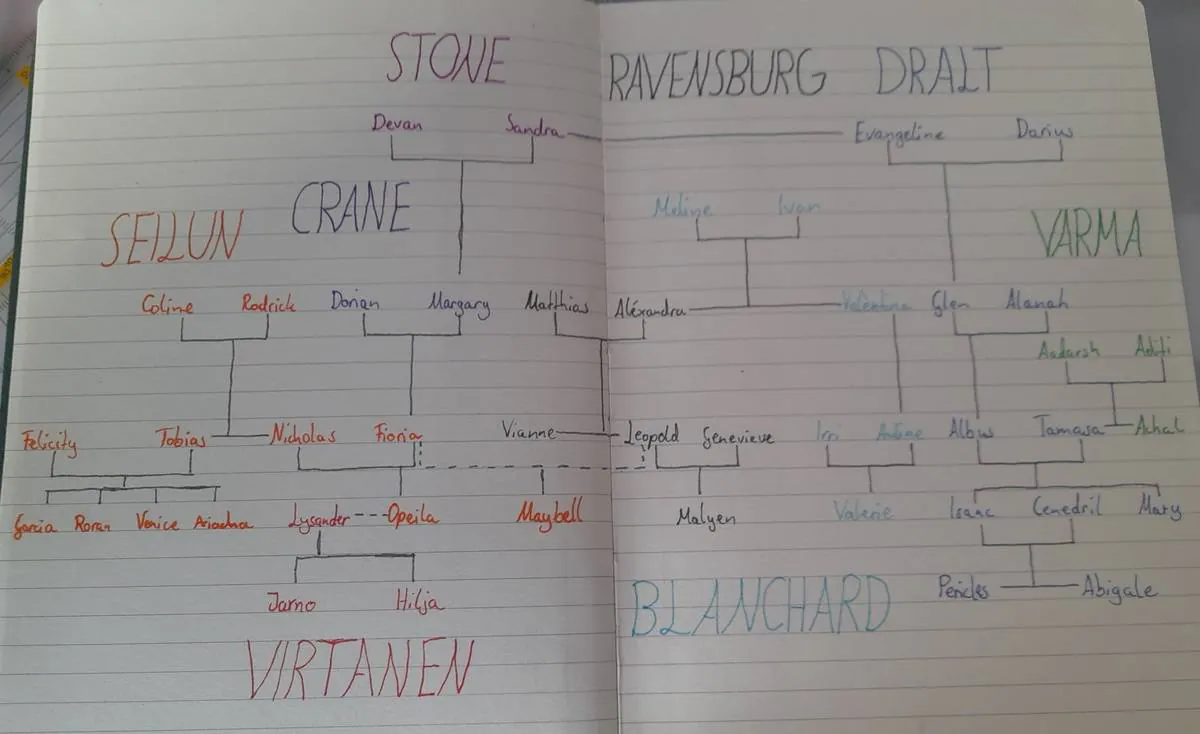 STONE RAVENSBURG DRALT
Devan Sandra Evangeline Darius
SEILUN CRANE Meline Ivan VARMA
Coline Rodrick Dorian Margary Matthias Aléxandra Valentina Glen Alanah
Aadarsh Aditi
Felicity Tobias Nicholas Fioria Vianne Leopold Genevieve Albus Tamasa Achal
Garcia Roran Venice Ariadna Lysander Opeila Maybell Malyen Valerie Isaac Cenedril Mary
Jarno Hilja BLANCHARD Pericles Abigale
VIRTANEN